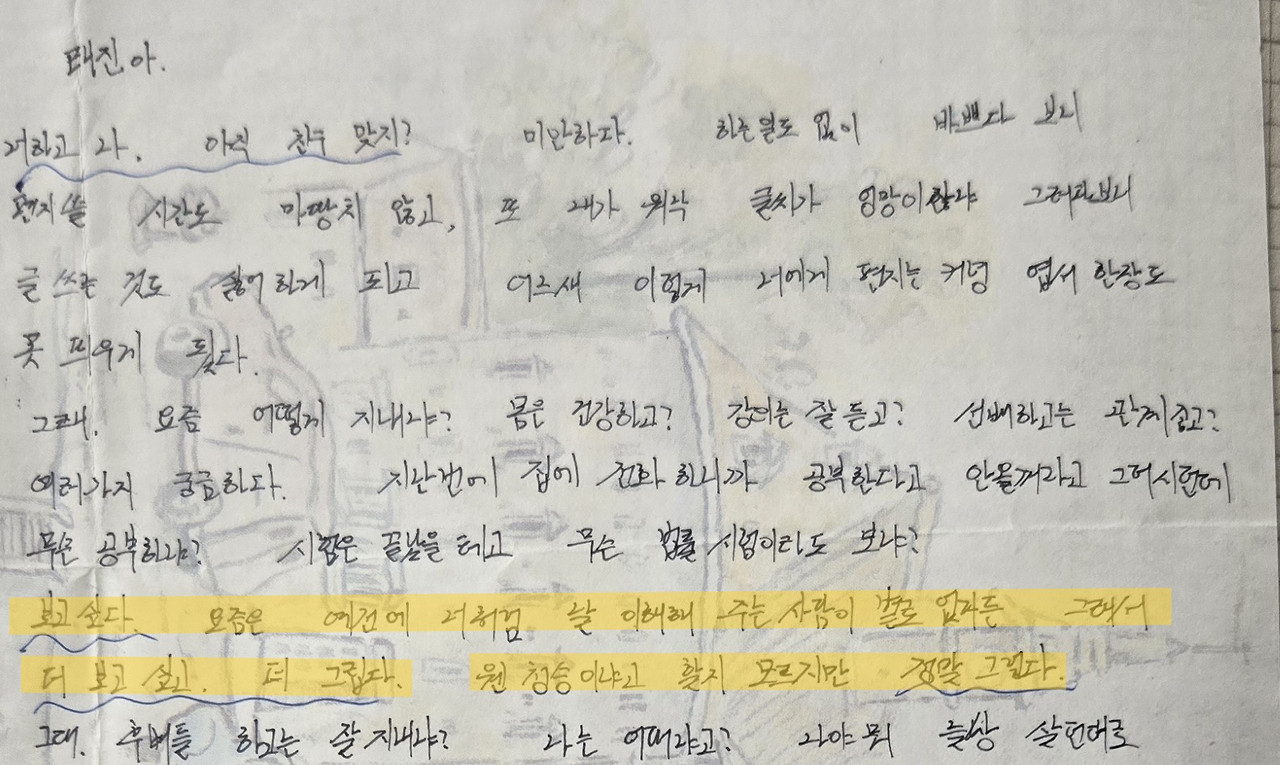 태진아.
너하고 나, 아직 친구 맞지? 미안하다. 하는일도 없이 바쁘다 보니
편지쓸 시간도 마땅치 않고, 또 내가 워낙 글씨가 엉망이잖냐 그러다보니
글 쓰는 것도 싫어하게 되고 어느새 이렇게 너에게 편지는 커녕 엽서 한장도
못 띄우게 됐다.
그래. 요즘 어떻게 지내냐? 몸은 건강하고? 강의는 잘 듣고? 선배하고는 관계좋고?
여러가지 궁금하다. 지난번에 집에 전화 하니까 공부한다고 안올꺼라고 그러시던데
무슨 공부하냐? 시험은 끝났을 테고 무슨 법률 시험이라도 보냐?
보고싶다. 요즘은 예전에 너처럼 날 이해해 주는 사람이 별로 없거든 그래서
더 보고 싶고. 더 그립다. 웬 청승이냐고 할지 모르지만 정말 그립다.
그래. 후배들 하고는 잘 지내냐? 나는 어떠냐고? 나야 뭐 늘상 살던대로